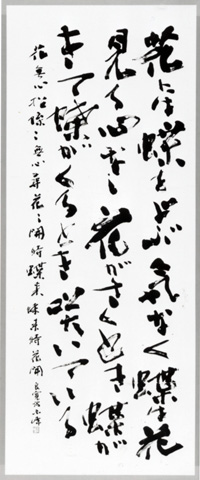 花には蝶をよぶ気なく蝶は花
見る心なし花がさくとき蝶が
きて蝶がくるとき咲いている
花無心招蝶々無心尋花々開時蝶来蝶来時花開 良寛